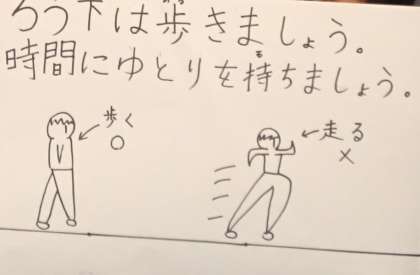 ろう下は歩きましょう。
時間にゆとりを持ちましょう。
歩く
○
走る
×